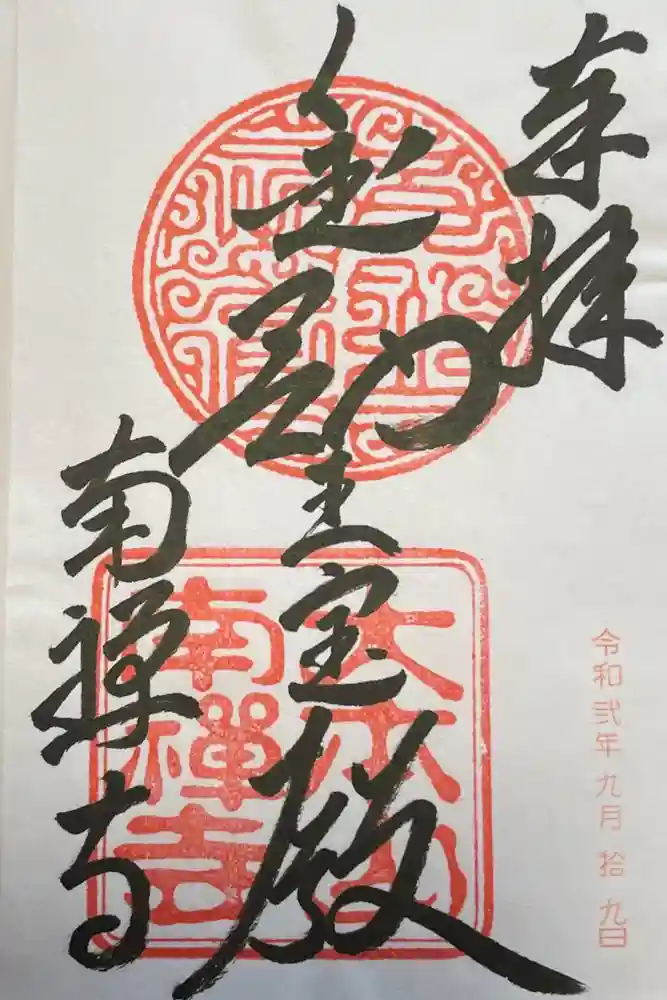 奉拝
令和弐年九月拾九日
金剛王宝殿
大本山
南禪寺
南禅寺